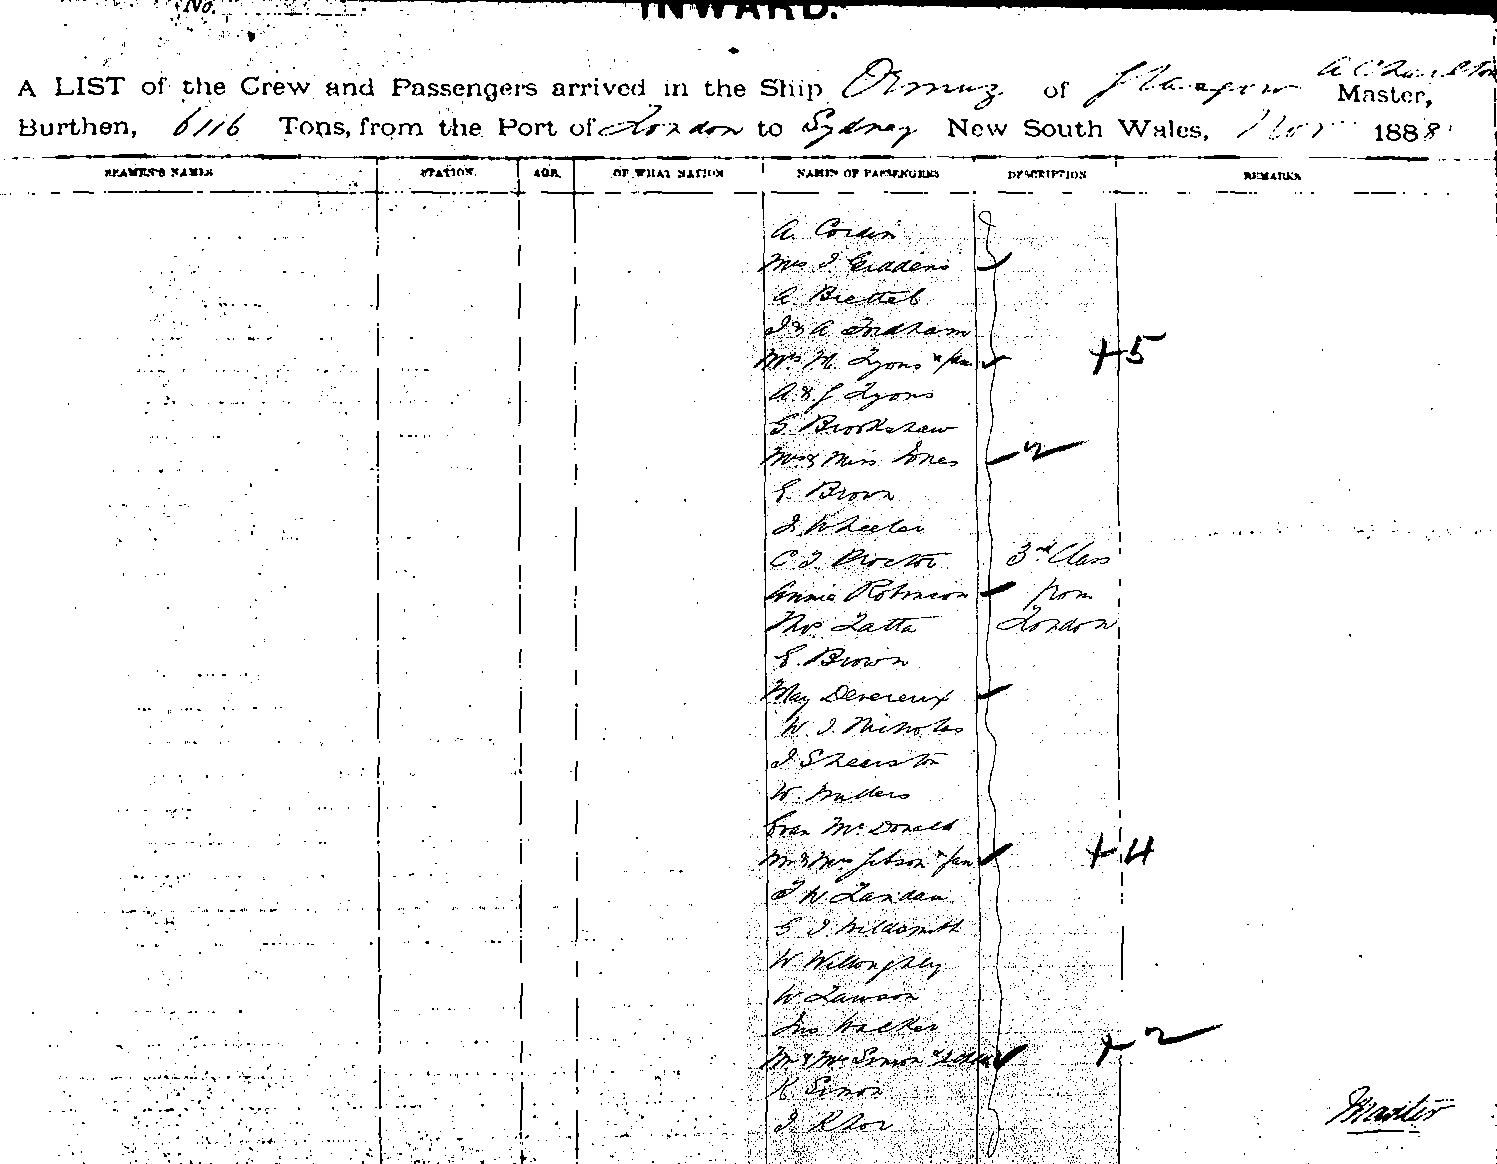 No.
INWARD.
A LIST of the Crew and Passengers arrived in the Ship Ormuz of Glasgow A Charlton Master,
Burthen, 6116 Tons, from the Port of London to Sydney New South Wales, Nov 1888
SEAMEN'S NAMES STATION. AGE. OF WHAT NATION NAMES OF PASSENGERS DESCRIPTION REMARKS
A. Corsin
Mrs J. Geddens
A. Brettel
J & A Fordham
Mrs M. Lyons & fam +5
A & J Lyons
G Brookshaw
Mrs & Miss Jones 2
E. Brown
J. Wheeler
C J Proctor 3rd Class
Annie Robinson from
Thos Latta London
E. Brown
May Devereux
W. J. Nicholas
J Sheerston
W. Walters
Evan McDonald
Mr & Mrs Gibson & fam +4
F W Landau
G J Wildsmith
W Willoughby
W Lawson
Jno Walker
Mr & Mrs Simon +2
K Simon
J. Khor
Master